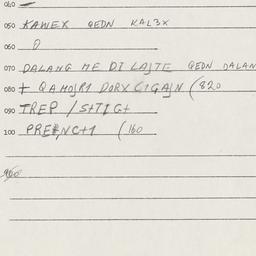 040
050 KAWEX QEDN KAL3X
060 0
070 DALANG ME DI LAJTE QEDN DALAN
080 + QAMOJR1 DORX C1GAJN (820
090 TREP / S+TIG+
100 (160